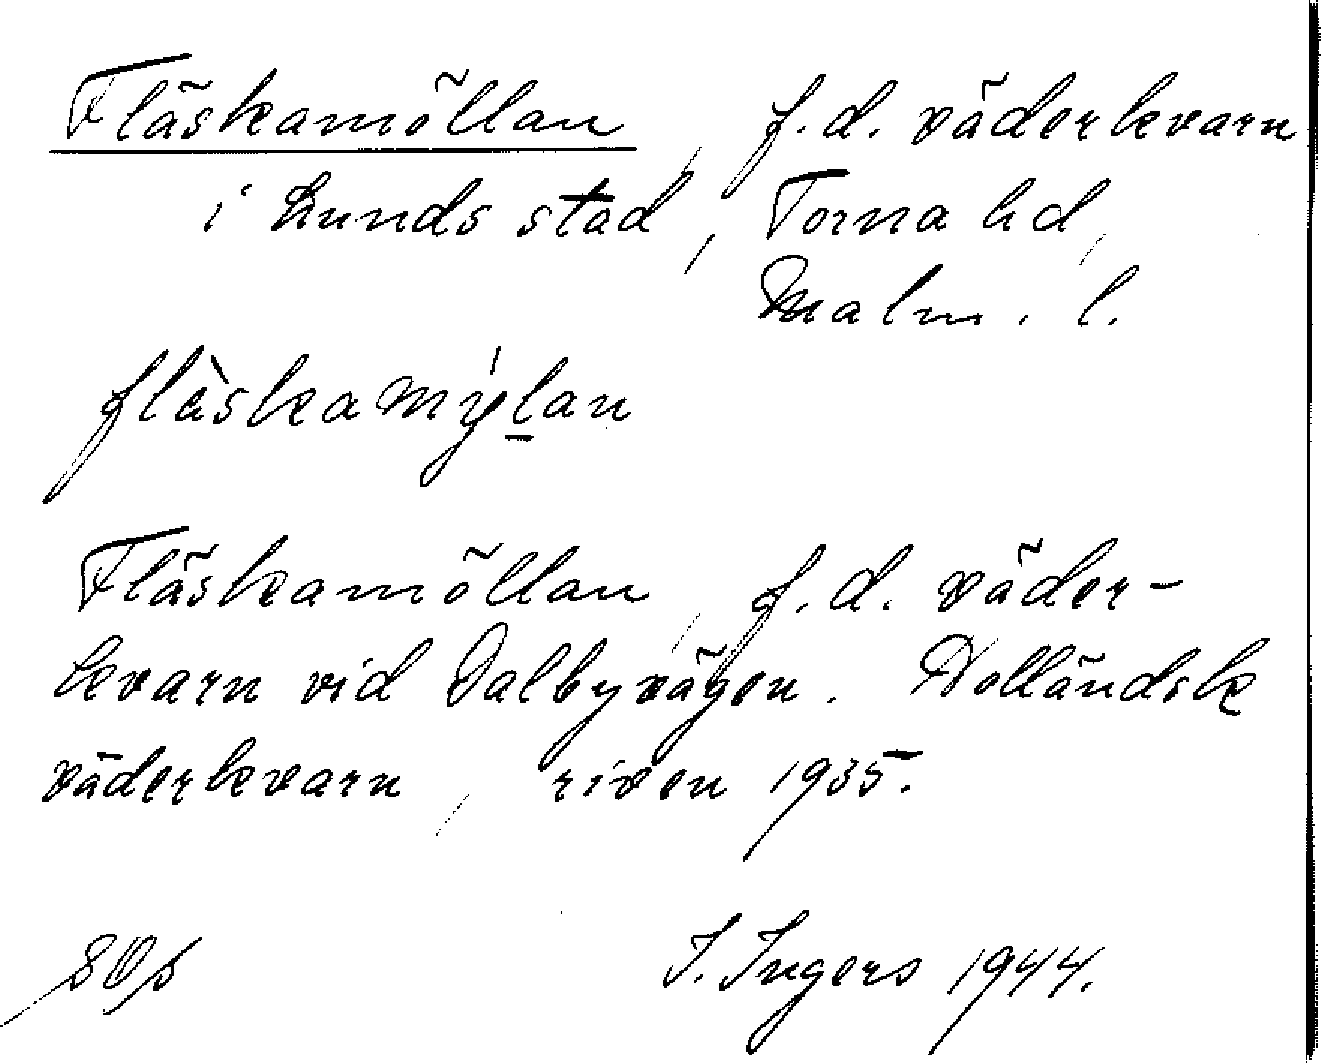 Fläskamöllan, f.d. väderkvarn
i Lunds stad, Torna hd,
Malm. l.
flàskamýlan
Fläskamöllan, f.d. väder-
kvarn vid Dalbyvägen. Holländsk
väderkvarn, riven 1935.
I. Ingers 1944.